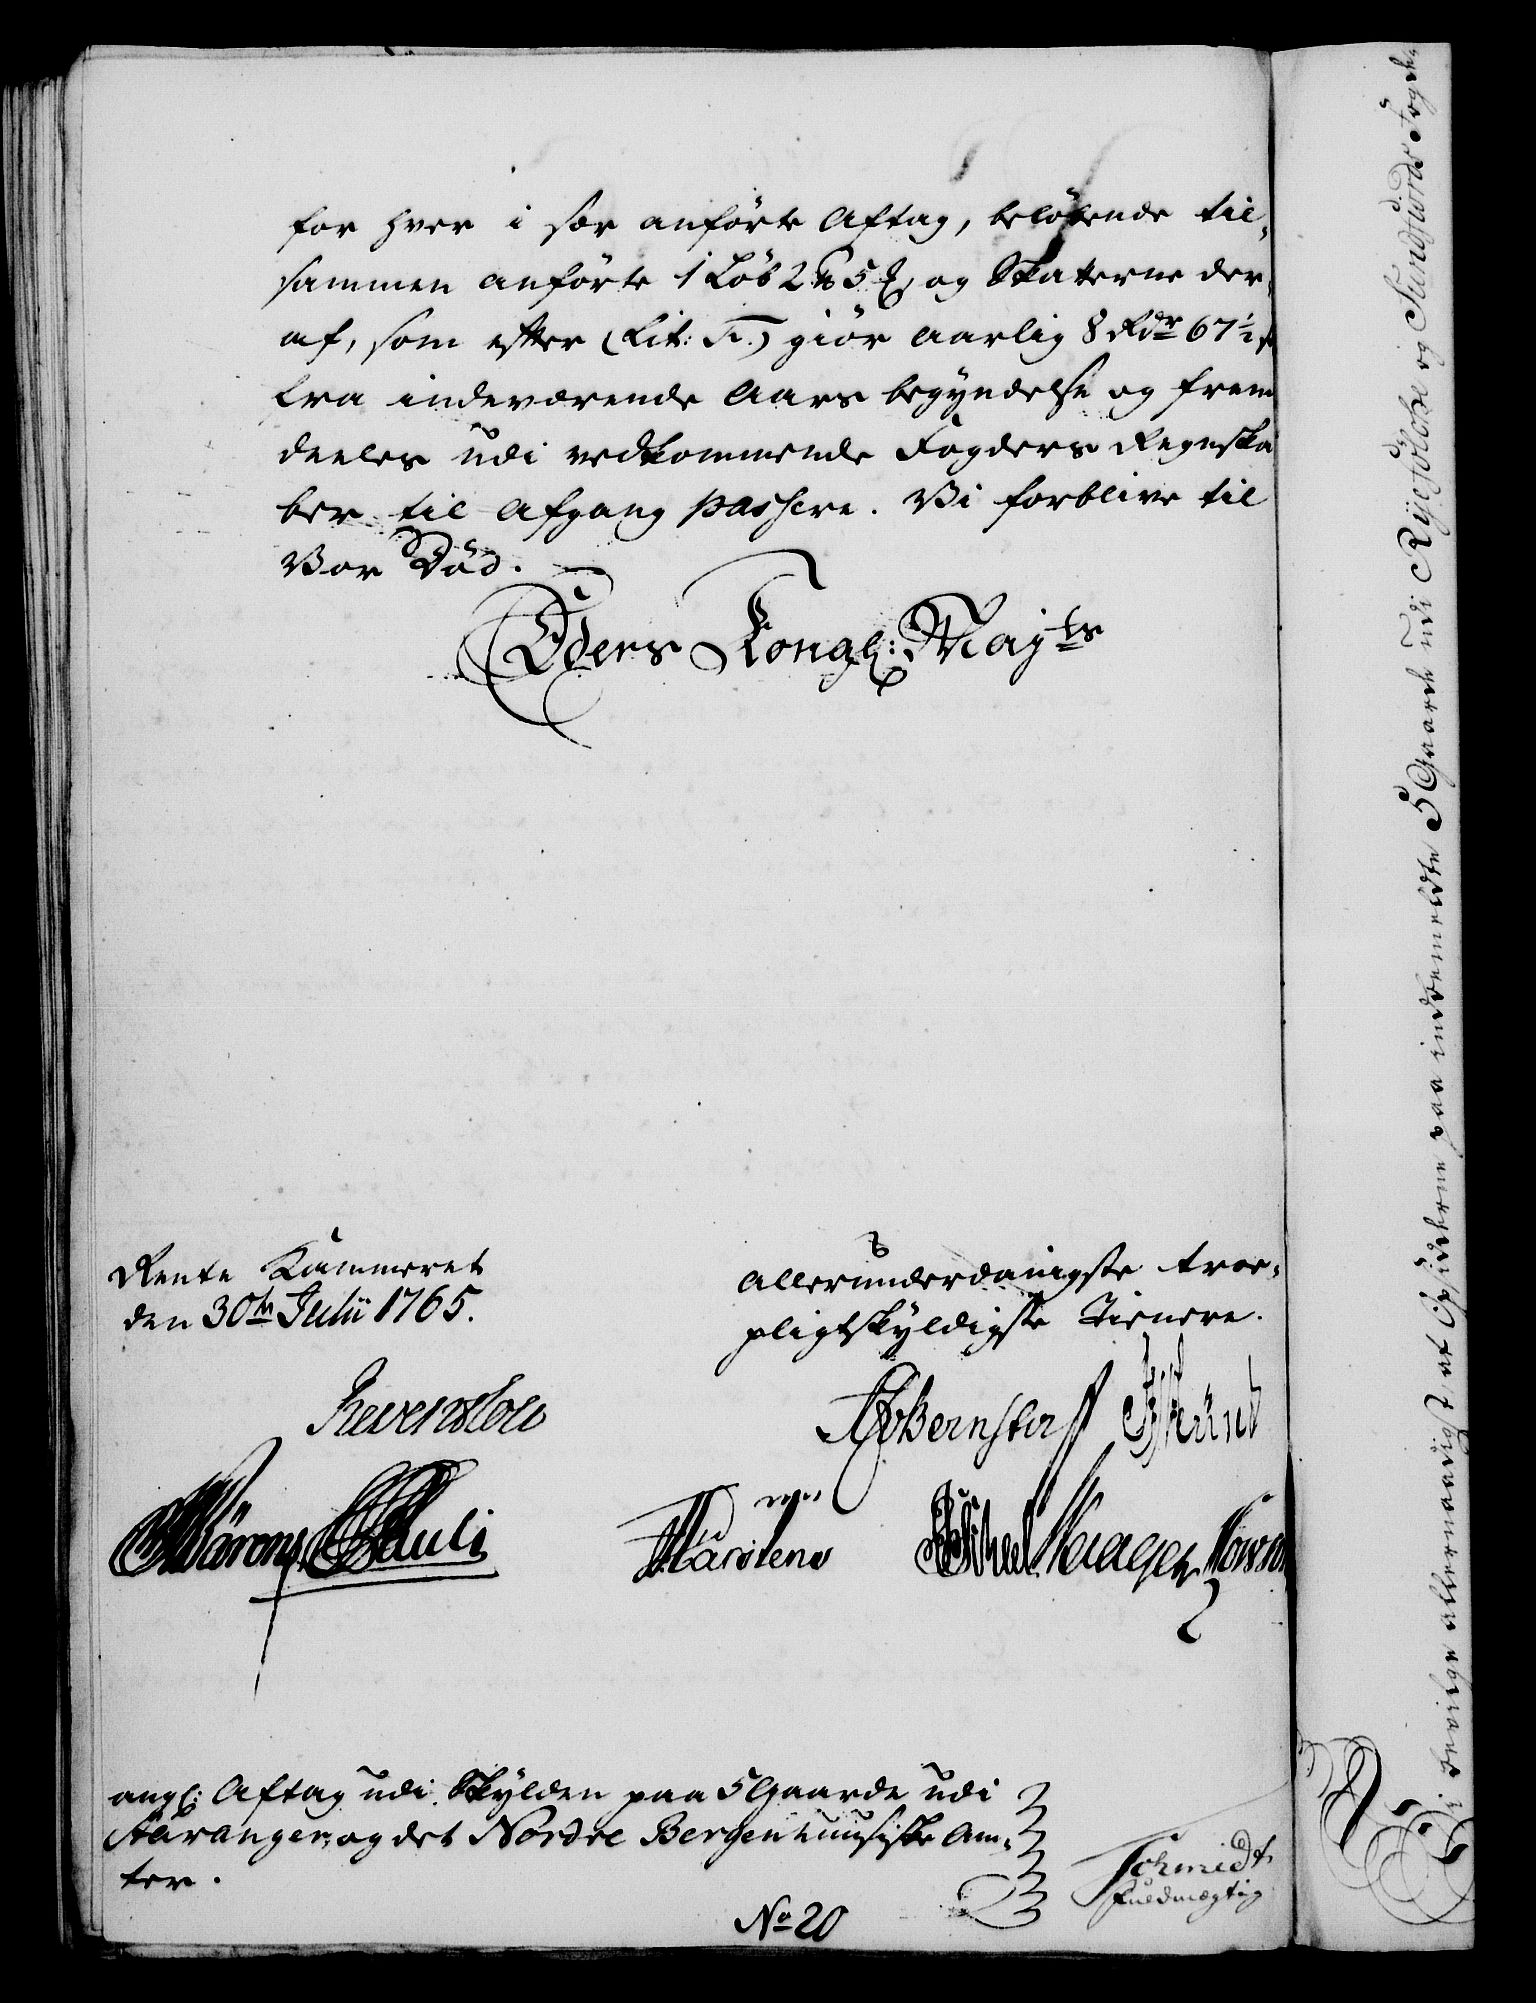 for hver i sær anførte Aftag, beløbende til-
sammen anførte 1 Løb 2 5 og Skatterne der-
af, som efter (Lit: .) giør aarlig 8 Rdr 67½ s
fra indeværende Aars begyndelse og frem
deeles udi vedkommende Fogders Regnska
ber til Afgang passere. Vi forblive til
Vor Død.
Eders Kongl: Mayts
Rente Kammeret
den 30te Julii 1765.
allerunderdanigste troe-
pligtskyldigste Tienere.
Reventlow
Bernstorff
Pauli
Karstens
angl: Aftag udi Skylden paa 5 Gaarde udi
Stavanger, og det Nordre Bergenhuusiske Am-
ter.
Schmidt
Fuldmægtig
No 20
Vi bevilge allernaadigst, at paa indbemeldte 5 Gaarde udi Ryefylche og Sundfiords Fogde